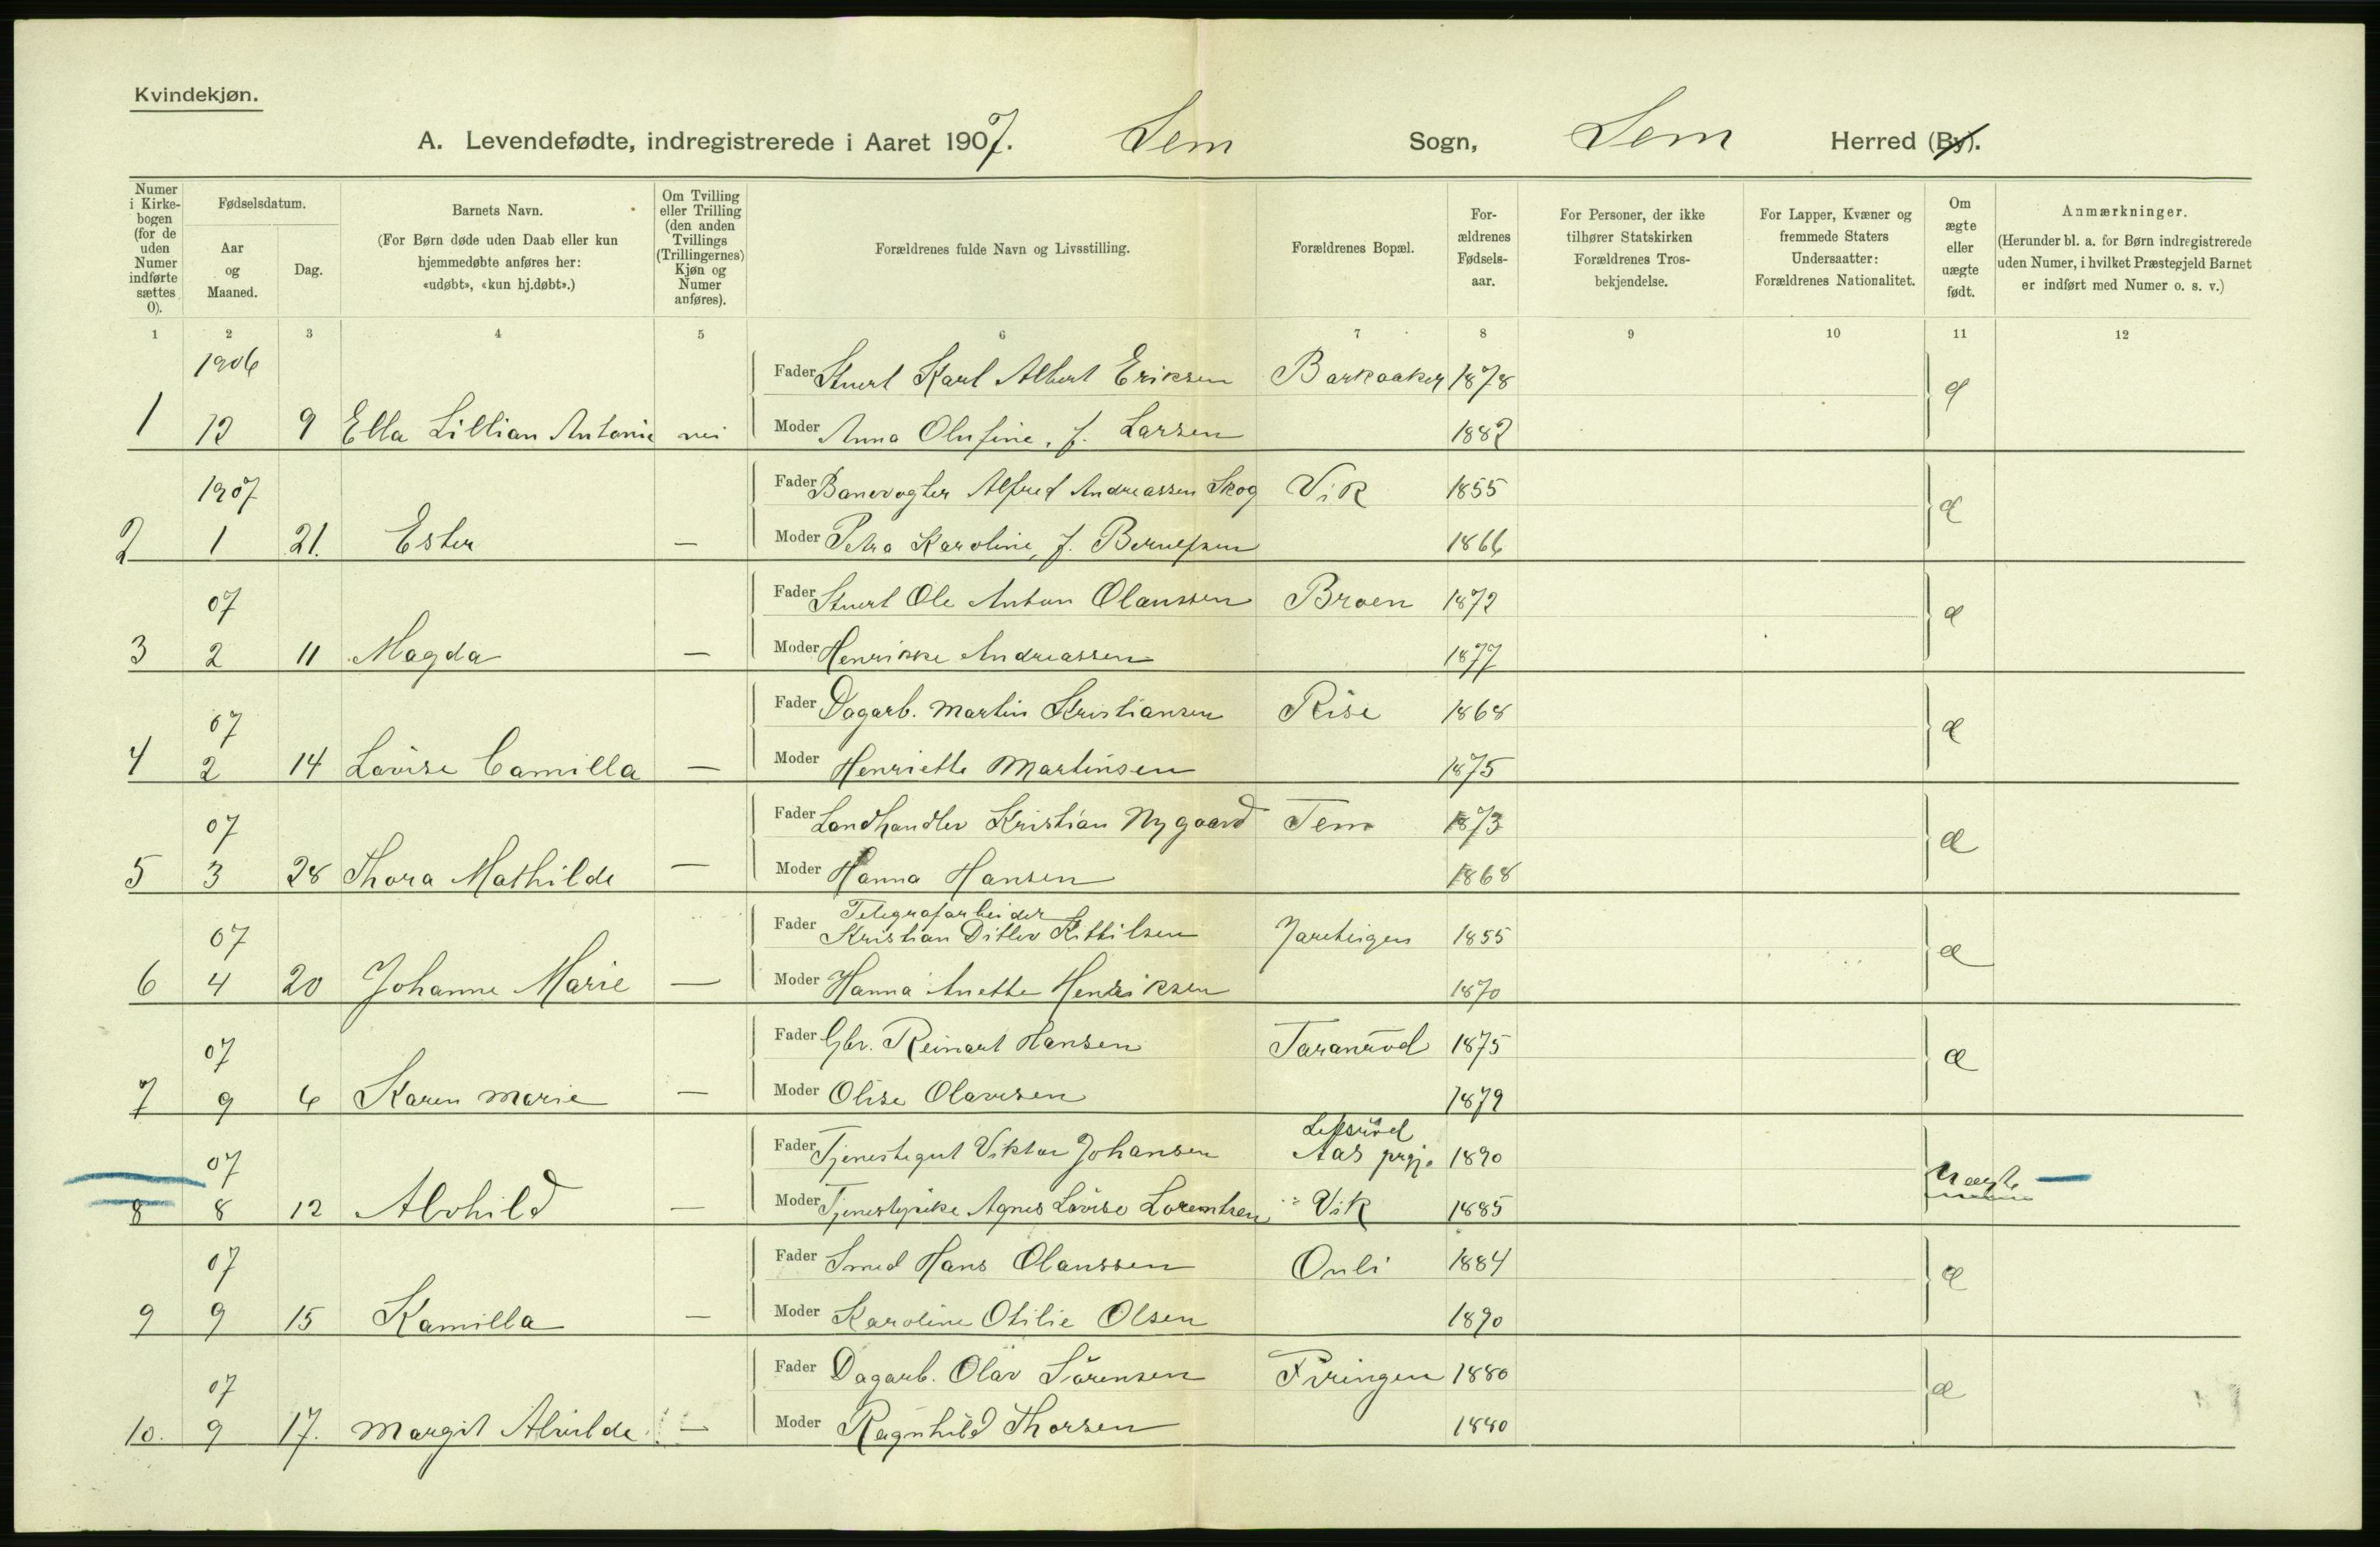 Kvindekjøn.
A. Levendefødte, indregistrerede i Aaret 1907. Sem Sogn, Sem Herred (By).
Numer i Kirkebogen (for de uden Numer indførte sættes 0).
Fødselsdatum.
Aar og Maaned.
Dag.
Barnets Navn.
(For Børn døde uden Daab eller kun hjemmedøbte anføres her: «udøbt», «kun hj.døbt».)
Om Tvilling eller Trilling (den anden Tvillings (Trillingernes) Kjøn og Numer anføres).
Forældrenes fulde Navn og Livsstilling.
Forældrenes Bopæl.
Forældrenes Fødselsaar.
For Personer, der ikke tilhører Statskirken Forældrenes Trosbekjendelse.
For Lapper, Kvæner og fremmede Staters Undersaatter: Forældrenes Nationalitet.
Om ægte eller uægte født.
Anmærkninger.
(Herunder bl. a. for Børn indregistrerede uden Numer, i hvilket Præstegjeld Barnet er indført med Numer o. s. v.)
1 2 3 4 5 6 7 8 9 10 11 12
1906
Fader Stuert Karl Albert Eriksen Barkaaker 1878 æ
1 12 9 Ella Lillian Antonie nei Moder Anna Olufine, f. Larsen 1882
1907
Fader Banevogter Alfred Andreassen Skog Vik 1855 æ
2 1 21. Ester — Moder Petra Karoline, f. Berntsen 1866
07
Fader Stuert Ole Anton Olaussen Broen 1872 æ
3 2 11 Magda — Moder Henrikke Andreassen 1877
07
Fader Dagarb. Martin Kristiansen Rise 1868 æ
4 2 14 Lovise Camilla — Moder Henriette Martinsen 1875
07
Fader Landhandler Kristian Nygaard Tem 1873 æ
5 3 28 Thora Mathilde — Moder Hanna Hansen 1868
07
Fader Telegrafarbeider
Kristian Ditlev Kittilsen Jareteigen 1855 æ
6 4 20 Johanne Marie — Moder Hanna Anette Henriksen 1870
07
Fader Gbr. Reinart Hansen Taranrød 1875 æ
7 9 6 Karen Marie — Moder Olise Olavesen 1879
07
Fader Tjenestegut Viktor Johansen Aas prgj. 1890 Uægte —
8 8 12 Alvhild — Moder Tjenestepike Agnes Lovise Lorentsen Vik 1885
07
Fader Smed Hans Olaussen Onli 1884 æ
9 9 15 Kamilla — Moder Karoline Otilie Olsen 1890
07
Fader Dagarb. Olav Sørensen Firingen 1880 æ
10. 9 17. Margit Alvilde — Moder Ragnhild Thorsen 1880